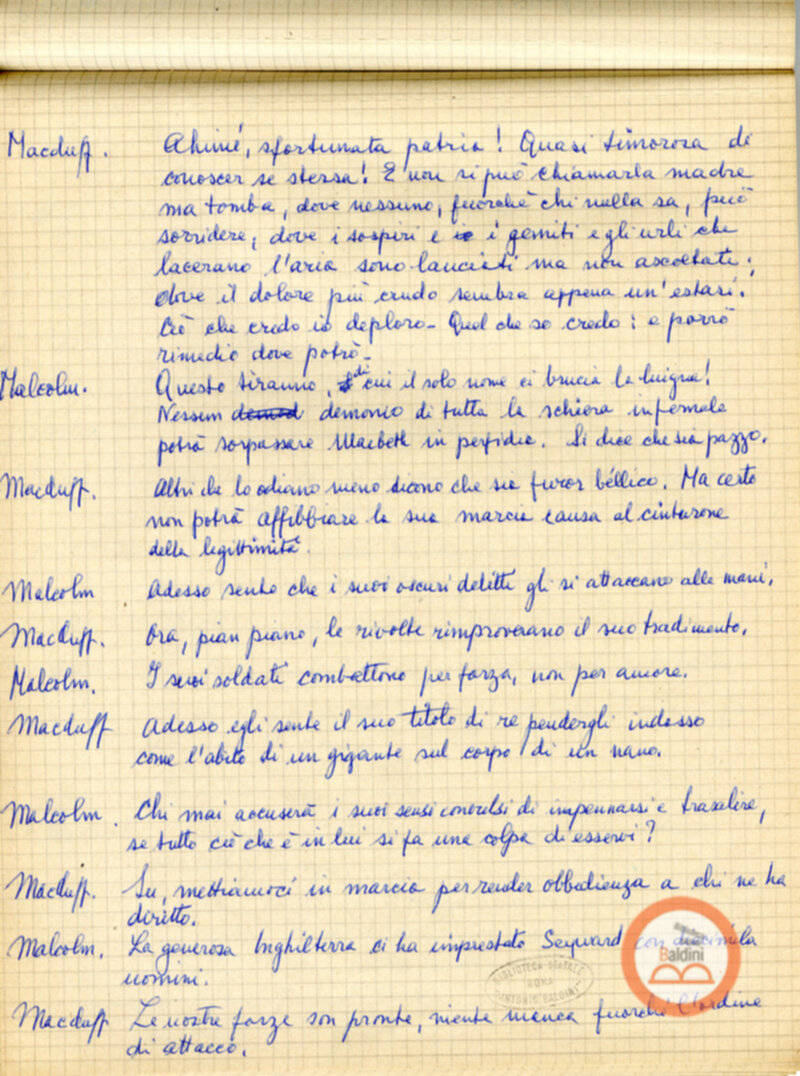 Macduff. Ahimé, sfortunata patria! Quasi timorosa di
conoscer se stessa! E non si può chiamarla madre
ma tomba, dove nessuno, fuorchè chi nulla sa, può
sorridere, dove i sospiri e i gemiti e gli urli che
lacerano l'aria sono lanciati ma non ascoltati;
dove il dolore più crudo sembra appena un'estasi.
Ciò che credo io deploro - Quel che so credo: e porrò
rimedio dove potrò -
Malcolm. Questo tiranno, di cui il solo nome ci brucia la lingua!
Nessun demonio di tutta la schiera infernale
potrà sorpassare Macbeth in perfidia. Si dice che sia pazzo.
Macduff. Altri che lo odiano meno dicono che sia furor béllico. Ma certo
non potrà affibbiare la sua marcia causa al cinturone
della legittimità.
Malcolm Adesso sento che i suoi oscuri delitti gli si attaccano alle mani.
Macduff. Ora, pian piano, le rivolte rimproverano il suo tradimento.
Malcolm. I suoi soldati combattono per forza, non per amore.
Macduff Adesso egli sente il suo titolo di re pendergli indosso
come l'abito di un gigante sul corpo di un nano.
Malcolm. Chi mai accuserà i suoi sensi convulsi di impennarsi e trasalire,
se tutto ciò che è in lui si fa una colpa di esservi?
Macduff. Su, mettiamoci in marcia per render obbedienza a chi ne ha
diritto.
Malcolm. La generosa Inghilterra ci ha imprestato Seyward con diecimila
uomini.
BIBLIOTECA STATALE
ROMA
"ANTONIO BALDINI"
Baldini
Macduff Le nostre forze son pronte, niente manca fuorché l'ordine
di attacco.